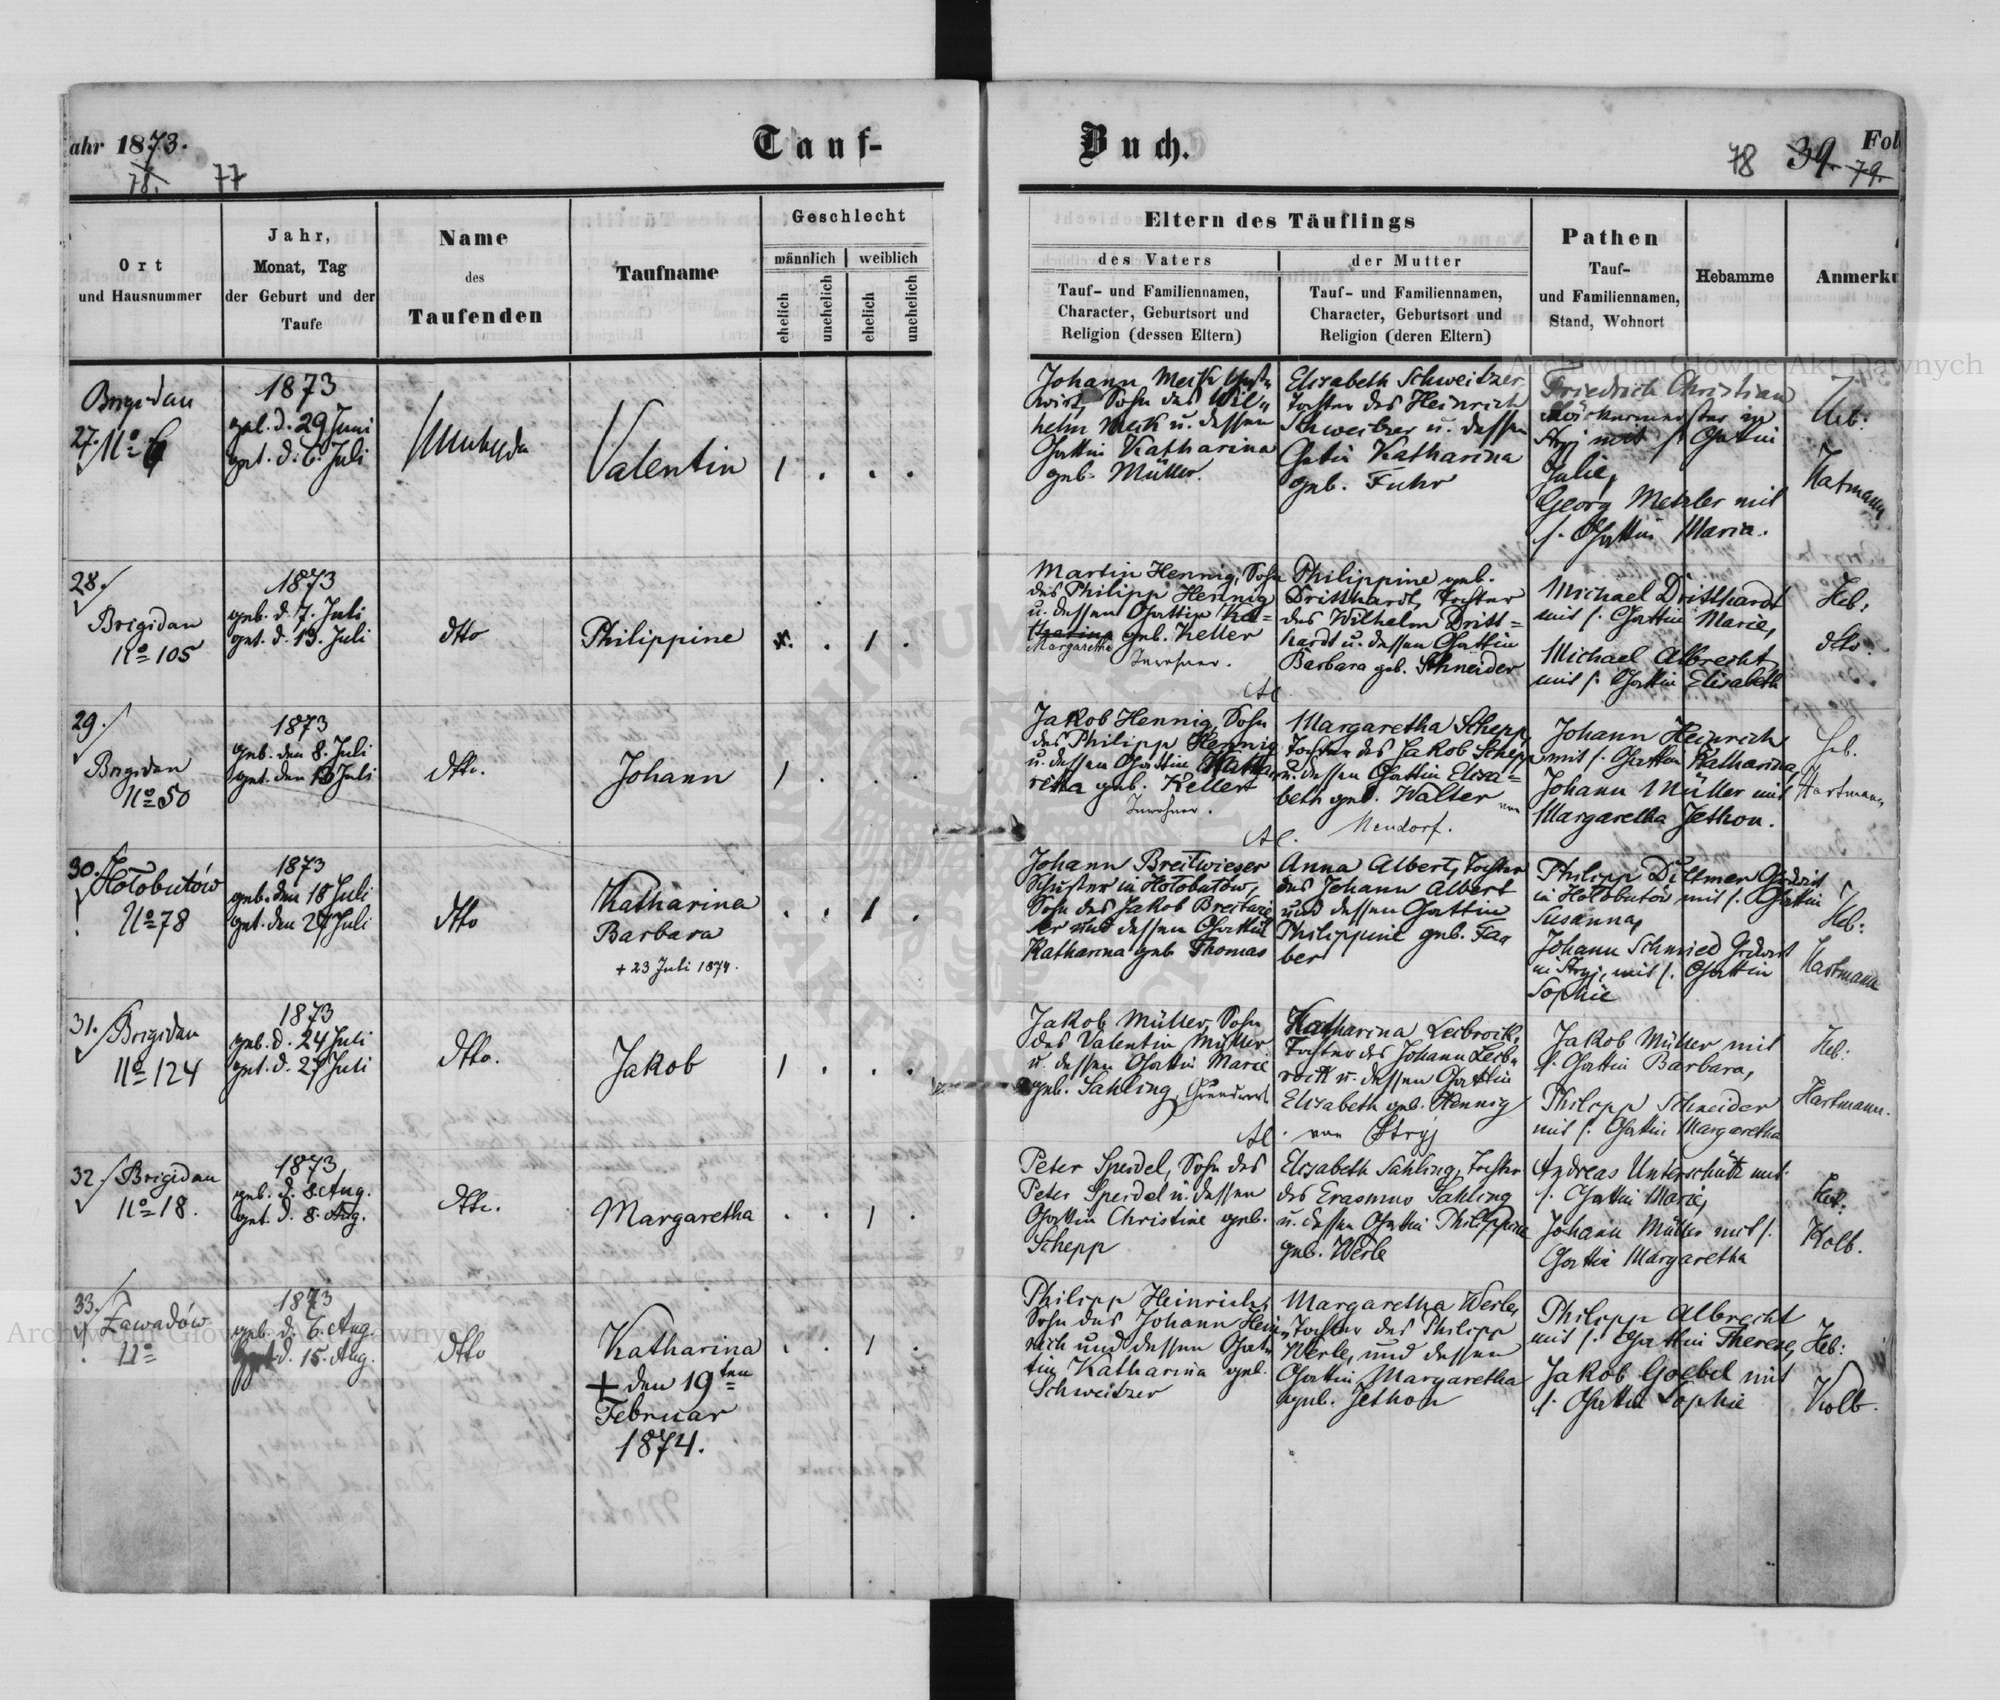 ahr 1873.
78. 77
Tauf-
Buch.
78 39. 79.
Fol
Ort
und Hausnummer
Jahr,
Monat, Tag
der Geburt und der
Taufe
Name
des
Taufenden
Taufname
Geschlecht
männlich weiblich
ehelich unehelich ehelich unehelich
Eltern des Täuflings
des Vaters
Tauf- und Familiennamen,
Character, Geburtsort und
Religion (dessen Eltern)
der Mutter
Tauf- und Familiennamen,
Character, Geburtsort und
Religion (deren Eltern)
Pathen
Tauf-
und Familiennamen,
Stand, Wohnort
Hebamme
Anmerku
Archiwum Główne Akt Dawnych
Brigidau
27. No 6
1873
geb. d. 29 Juni
get. d. 6. Juli
Valentin
1 . . .
Johann Meck
wirt, Sohn des Wil„
helm Meck u. dessen
Gattin Katharina
geb. Müller.
Elisabeth Schweitzer,
Tochter des Heinrich
Schweitzer u. dessen
Gatin Katharina
geb. Fuhr
Friedrich Christian
Stryj mit s. Gattin
Julie,
Georg Metzler mit
s. Gattin Maria.
Heb:
Hatmann
28.
Brigidau
No 105
1873
geb. d. 7. Juli
get. d. 13. Juli
dtto
Philippine
. . 1 .
Martin Hennig, Sohn
des Philipp Hennig
u. dessen Gattin Ka=
tharina geb. Keller
Margarethe
Inwohner.
Philippine geb.
Dritthardt, Tochter
des Wilhelm Dritt=
hardt u. dessen Gattin
Barbara geb. Schneider
Michael Dritthardt
mit s. Gattin Marie,
Michael Albrecht
mit s. Gattin Elisabeth
Heb:
dtto.
29.
Brigidau
No 50
1873
geb. den 8. Juli
get. den 13 Juli
dtto.
Johann
1 . . .
Jakob Hennig, Sohn
des Philipp Hennig
u. dessen Gattin
retha geb. Kellert
Inwohner.
Margaretha Schepp
Tochter des Jakob Schepp
u. dessen Gattin Elisa=
beth geb. Walter von
Neudorf.
Johann Heinrich
mit s. Gattin Katharina
Johann Müller mit
Margaretha Jethon.
Heb.
Hartmann
30. Hołobutów
No 78
1873
geb. den 18 Juli
get. den 27 Juli
dtto
Katharina
Barbara
+ 23 Juli 1874.
. . 1 .
Johann Breitwieser
Schuster in Hołobutów,
Sohn des Jakob Breitwie
ser und dessen Gattin
Katharina geb Thomas
Anna Albert, Tochter
des Johann Albert
und dessen Gattin
Philippine geb. Fa„
ber
Philipp Dittmer Grdwirt
in Hołobutów mit s. Gattin
Susanna,
Johann Schmied Grdwirt
in Stryj, mit s. Gattin
Sophie
Heb:
Hartmann
31. Brigidau
No 124
1873
geb. d. 24 Juli
get. d. 27 Juli
dtto.
Jakob
1 . . .
Jakob Müller, Sohn
des Valentin Müller
u. dessen Gattin Marie
geb. Sahling, Grundwirt
Katharina Leibrock,
Tochter des Johann Leib„
rock u. dessen Gattin
Elisabeth geb. Hennig
von Stryj
Jakob Müller mit
s. Gattin Barbara,
Philipp Schneider
mit s. Gattin Margaretha
Heb:
Hartmann.
32 Brigidau
No 18.
1873
geb. d. 8. Aug.
get. d. 8. Aug.
dtto.
Margaretha
. . 1 .
Peter Speidel, Sohn des
Peter Speidel u. dessen
Gattin Christine geb.
Schepp
Elisabeth Sahling, Tochter
des Erasmus Sahling
u. dessen Gattin Philippine
geb. Werle
Andreas Unterschütz mit
s. Gattin Marie,
Johann Müller mit s.
Gattin Margaretha
Heb.
Kolb.
33. Zawadów
No
1873
geb. d. 6. Aug.
get. d. 15. Aug.
dtto
Katharina
+ den 19ten
Februar
1874.
. . 1 .
Philipp Heinrich,
Sohn des Johann Hein„
rich und dessen Gat„
tin Katharina geb.
Schweitzer
Margaretha Werle,
Tochter des Philipp
Werle, und dessen
Gattin Margaretha
geb. Jethon
Philipp Albrecht
mit s. Gattin Therese,
Jakob Goebel mit
s. Gattin Sophie
Heb:
Kolb.
Archiwum Główne Akt Dawnych